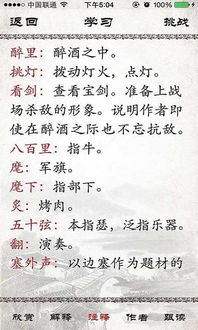 中国联通 下午5:04 100%
返回 学习 挑战
醉里：醉酒之中。
挑灯：拨动灯火，点灯。
看剑：查看宝剑。准备上战
场杀敌的形象。说明作者即
使在醉酒之际也不忘抗敌。
八百里：指牛。
麾：军旗。
麾下：指部下。
炙：烤肉。
五十弦：本指瑟，泛指乐器。
翻：演奏。
塞外声：以边塞作为题材的
欣赏 解释 注释 作者 甄读